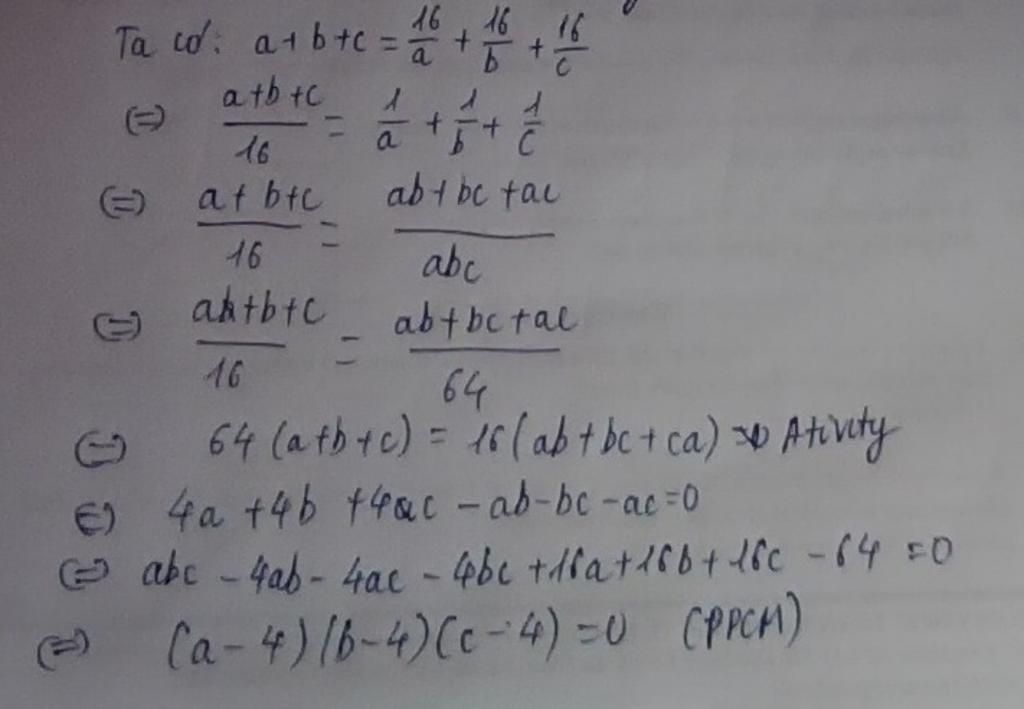 Ta có: a+b+c = 16/a + 16/b + 16/c
(=) a+b+c/16 = 1/a + 1/b + 1/c
(=) a+b+c/16 = ab+bc+ac/abc
(=) a+b+c/16 = ab+bc+ac/64
(=) 64(a+b+c) = 16(ab+bc+ca)
(=) 4a+4b+4c-ab-bc-ac=0
(=) abc-4ab-4ac-4bc+16a+16b+16c-64=0
(=) (a-4)(b-4)(c-4)=0 (PPCM)